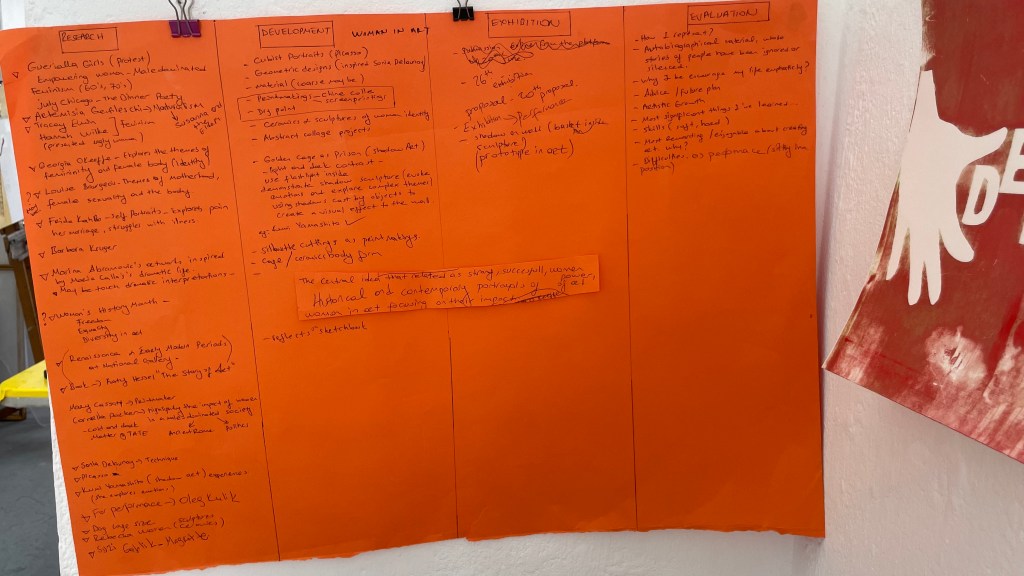 RESEARCH
Guerrilla Girls (protest)
Empowering women - Male dominated
Feminism (60's, 70's)
Judy Chicago - The Dinner Party
Artemisia Gentileschi -> Naturalism
Tracey Emin
Hannah Wilke
feminism
(presented ugly women)
Susanna and Elders
Georgia O'Keeffe - Explores the themes of
femininity and female body (identity)
Louise Bourgeois - Themes of motherhood,
female sexuality and the body
Frida Kahlo - Self Portraits - explores pain
her marriage, struggles with illness
Barbara Kruger
Marina Abramovic's artworks, inspired
by Maria Callas's dramatic life
May be touch dramatic interpretations -
? Women's History Month -
Freedom
Equality
Diversity in art
(Renaissance & Early Modern Periods
on National Gallery -
Book -> Katy Hessel "The Story of Art"
Mary Cassatt -> Printmaker
Cornelia Parker -> the impact of women
- cold and dark in a male dominated society
Ancient Rome
Sonia Delaunay Technique
Picasso
Kumi Yamashita (shadow art) experiences
(she explores emotions)
For performance -> Oleg Kulik
Dog cage size sculptures
Rebecca Warren (ceramics)
DEVELOPMENT
WOMAN IN ART
Cubist Portraits (Picasso)
- Geometric designs (inspired Sonia Delaunay)
- material (coarse maybe)
- Printmakings - Chine colle
- screenprintings
- Dry point
- Ceramics & sculptures of women identity
- Abstract collage projects
- Golden Cage as Prison (Shadow Art)
- light and dark contrast -
use flashlight inside
demonstrate shadow sculpture (evoke
emotions and explore complex themes)
using shadows cast by objects to
create a visual effect to the wall
eg. Kumi Yamashita
- Silhouette cuttings as printmakings
- Cage / ceramics body form
The central idea that related as strong, successfull, women
power,
Historical and contemporary portrayals of
of art
women in art focusing on their impact
- reflects - sketchbook
EXHIBITION
- 26th exhibition
proposal - 20th proposal
- Exhibition -> Performance
- shadow on wall (basket inside
sculpture)
(prototype in apt)
EVALUATION
- How I explore?
- Autobiographical material, whose
stories of people have been ignored or
silenced.
- why I be encourage my life
- Advice / future plan
- Artistic Growth
- Most significant things I've learned...
- Skills (soft, hard)
- Most rewarding / enjoyable about creating
art why?
- Difficulties as performance (sitting in a
position)